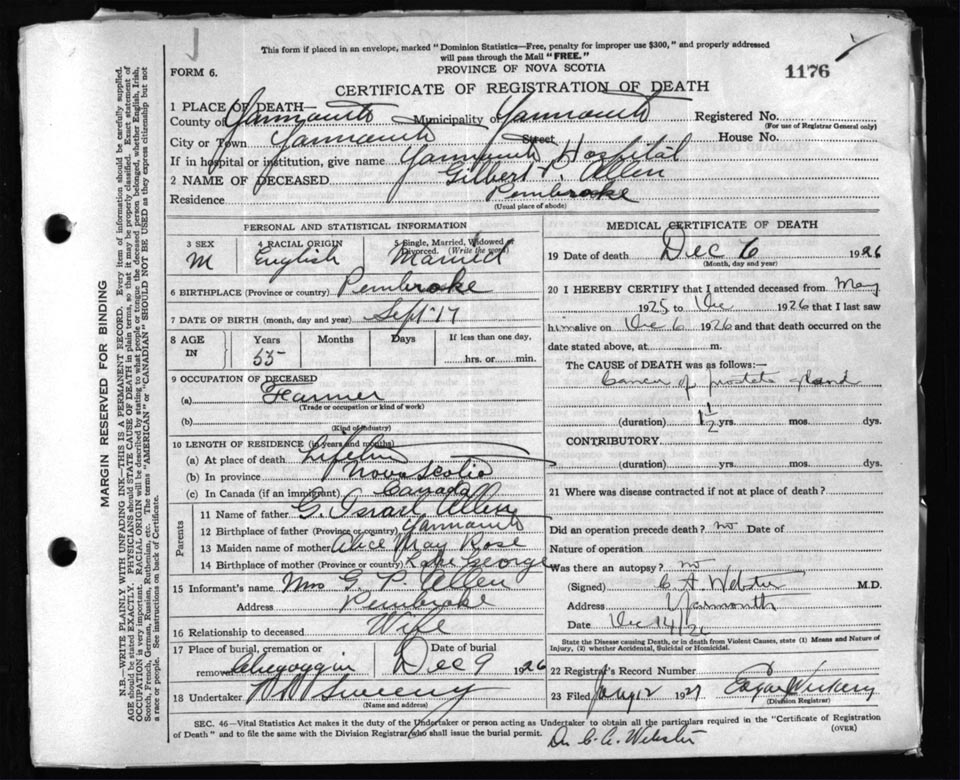 This form if placed in an envelope, marked "Dominion Statistics—Free, penalty for improper use $300," and properly addressed
will pass through the Mail "FREE."
FORM 6.
PROVINCE OF NOVA SCOTIA
1176
CERTIFICATE OF REGISTRATION OF DEATH
1 PLACE OF DEATH—
County of Yarmouth Municipality of Yarmouth Registered No.
(For use of Registrar General only)
City or Town Yarmouth Street House No.
If in hospital or institution, give name Yarmouth Hospital
2 NAME OF DECEASED Gilbert P. Allen
Residence Pembroke
(Usual place of abode)
PERSONAL AND STATISTICAL INFORMATION
3 SEX 4 RACIAL ORIGIN 5 Single, Married, Widowed or Divorced. (Write the word)
M English Married
6 BIRTHPLACE (Province or country) Pembroke
7 DATE OF BIRTH (month, day and year) Sept 17
8 AGE IN Years Months Days If less than one day,
55 hrs. or min.
9 OCCUPATION OF DECEASED
(a) Farmer
(Trade or occupation or kind of work)
(b)
(Kind of industry)
10 LENGTH OF RESIDENCE (in years and months)
(a) At place of death Lifetime
(b) In province Nova Scotia
(c) In Canada (if an immigrant) Canada
Parents
11 Name of father G. Israel Allen
12 Birthplace of father (Province or country) Yarmouth
13 Maiden name of mother Alice May Rose
14 Birthplace of mother (Province or country) Lake George
15 Informant's name Mrs G. P. Allen
Address Pembroke
16 Relationship to deceased Wife
17 Place of burial, cremation or removal Date of burial
Chegoggin Dec 9 1926
18 Undertaker Sweeny
(Name and address)
MEDICAL CERTIFICATE OF DEATH
19 Date of death Dec 6 1926
(Month, day and year)
20 I HEREBY CERTIFY that I attended deceased from May
1925 to Dec 1926 that I last saw
him alive on Dec 6 1926 and that death occurred on the
date stated above, at m.
The CAUSE OF DEATH was as follows:
Cancer of prostate gland
(duration) 1 1/2 yrs. mos. dys.
CONTRIBUTORY
(duration) yrs. mos. dys.
21 Where was disease contracted if not at place of death?
Did an operation precede death? no Date of
Nature of operation
Was there an autopsy? no
(Signed) C A Webster M.D.
Address Yarmouth
Date Dec 14/26
State the Disease causing Death, or in Death from Violent Causes, state (1) Means and Nature of
Injury, (2) whether Accidental, Suicidal or Homicidal.
22 Registrar's Record Number
23 Filed Jany 12 1927 Edgar
(Division Registrar)
SEC. 46—Vital Statistics Act makes it the duty of the Undertaker or person acting as Undertaker to obtain all the particulars required in the "Certificate of Registration
of Death" and to file the same with the Division Registrar who shall issue the burial permit.
(OVER)
Dr. C. A. Webster
MARGIN RESERVED FOR BINDING
N.B.—WRITE PLAINLY WITH UNFADING INK—THIS IS A PERMANENT RECORD. Every item of information should be carefully supplied.
AGE should be stated EXACTLY. PHYSICIANS should STATE CAUSE OF DEATH in plain terms, so that it may be properly classified. Exact statement of
OCCUPATION is very important. RACIAL ORIGIN will be described by stating to what people or tongue the deceased person belonged, whether English, Irish,
Scotch, French, German, Russian, Ruthenian, etc. The terms "AMERICAN" or "CANADIAN" SHOULD NOT BE USED as they express citizenship but not
a race or people. See instructions on back of Certificate.